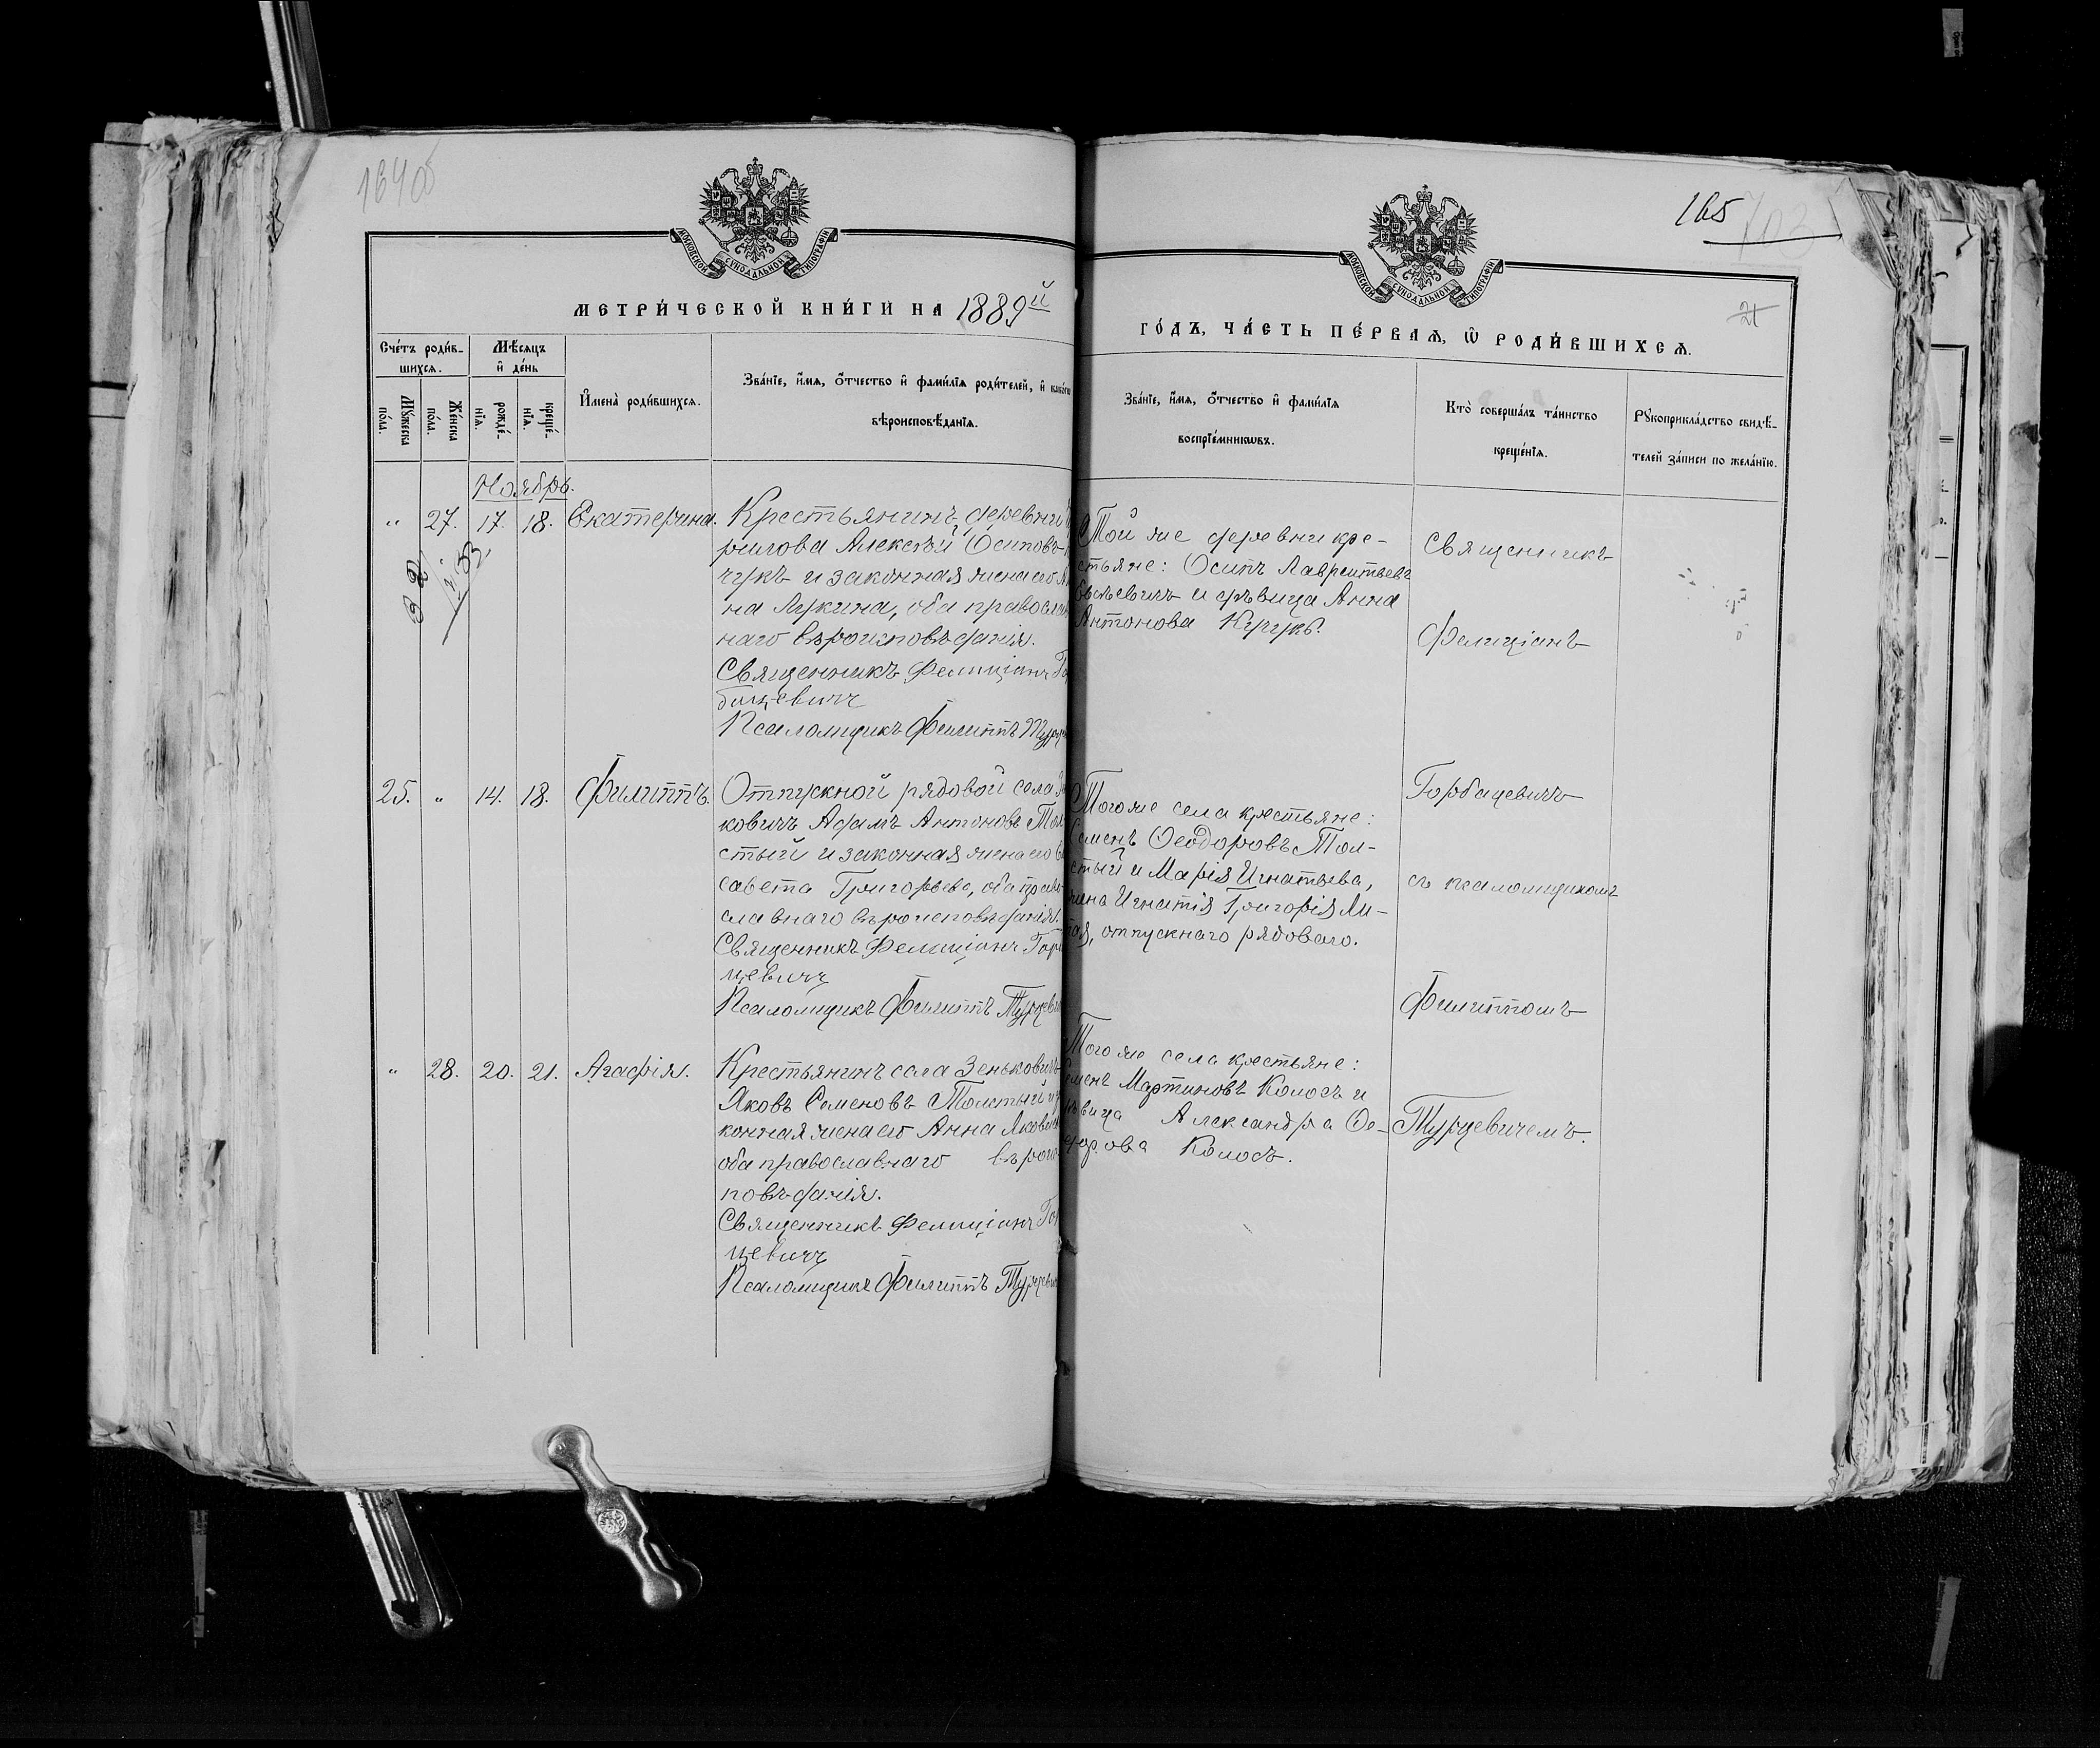 164об
МОСКОВСКОЙ СУНОДАЛЬНОЙ ТИПОГРАФІИ
МЕТРИ́ЧЕСКОЙ КНИ́ГИ НА 1889й
Сче́тъ роди́в-
шихся.
Мѣсяцъ
и҆ де́нь
Мꙋ́жеска
по́ла.
Же́нска
по́ла.
рожде́-
нїя.
креще́-
нїя.
И҆мена̀ роди́вшихся.
Зва́нїе, и҆́мя, ѻ҆́тчество и҆ фами́лїя роди́телей, и҆
вѣроисповѣ́данїя.
Ноябрь.
" 27. 17. 18. Екатерина.
Крестьянинъ деревни
рилова Алексѣй Осиповъ
чукъ и законная жена его
на Лукина, оба правосла
наго вѣроисповѣданія.
Священникъ Фелиціанъ Гор
бацевичъ
Псаломщикъ Филиппъ Турце
25. " 14. 18. Филиппъ.
Отпускной рядовой села Зен
ковичъ Адамъ Антоновъ Тол
стый и законная жена его
савета Григорьева, оба право
славнаго вѣроисповѣданія.
Священникъ Фелиціанъ Горб
цевичъ
Псаломщикъ Филиппъ Турцеви
" 28. 20. 21. Агафія.
Крестьянинъ села Зеньковичъ
Яковъ Семеновъ Толстый и
конная жена его Анна Яковле
оба православнаго вѣрои
повѣданія.
Священникъ Фелиціанъ Го
цевичъ
Псаломщикъ Филиппъ Турцеви
165
21
МОСКОВСКОЙ СУНОДАЛЬНОЙ ТИПОГРАФІИ
ГО́ДЪ, ЧА́СТЬ ПЕ́РВАѦ, Ѡ҆ РОДИ́ВШИХСѦ.
Зва́нїе, и҆́мя, ѻ҆́тчество и҆ фами́лїя
воспрїе́мникѡвъ.
Кто̀ соверша́лъ та́инство
креще́нїя.
Рꙋкоприкла́дство свидѣ́-
телей за́писи по жела́нїю.
Той же деревни кре-
стьяне: Осипъ Лаврентьевъ
и дѣвица Анна
Антонова
Тогоже села крестьяне:
Семенъ Ѳеодоровъ Тол-
стый и Марія Игнатьева,
жена Игнатія Григорія Ли-
, отпускнаго рядоваго.
Тогоже села крестьяне:
Семенъ Мартиновъ Колосъ и
дѣвица Александра Ѳе-
дорова Колосъ.
Священникъ
Фелиціанъ
Горбацевичъ
съ псаломщикомъ
Филиппомъ
Турцевичемъ.